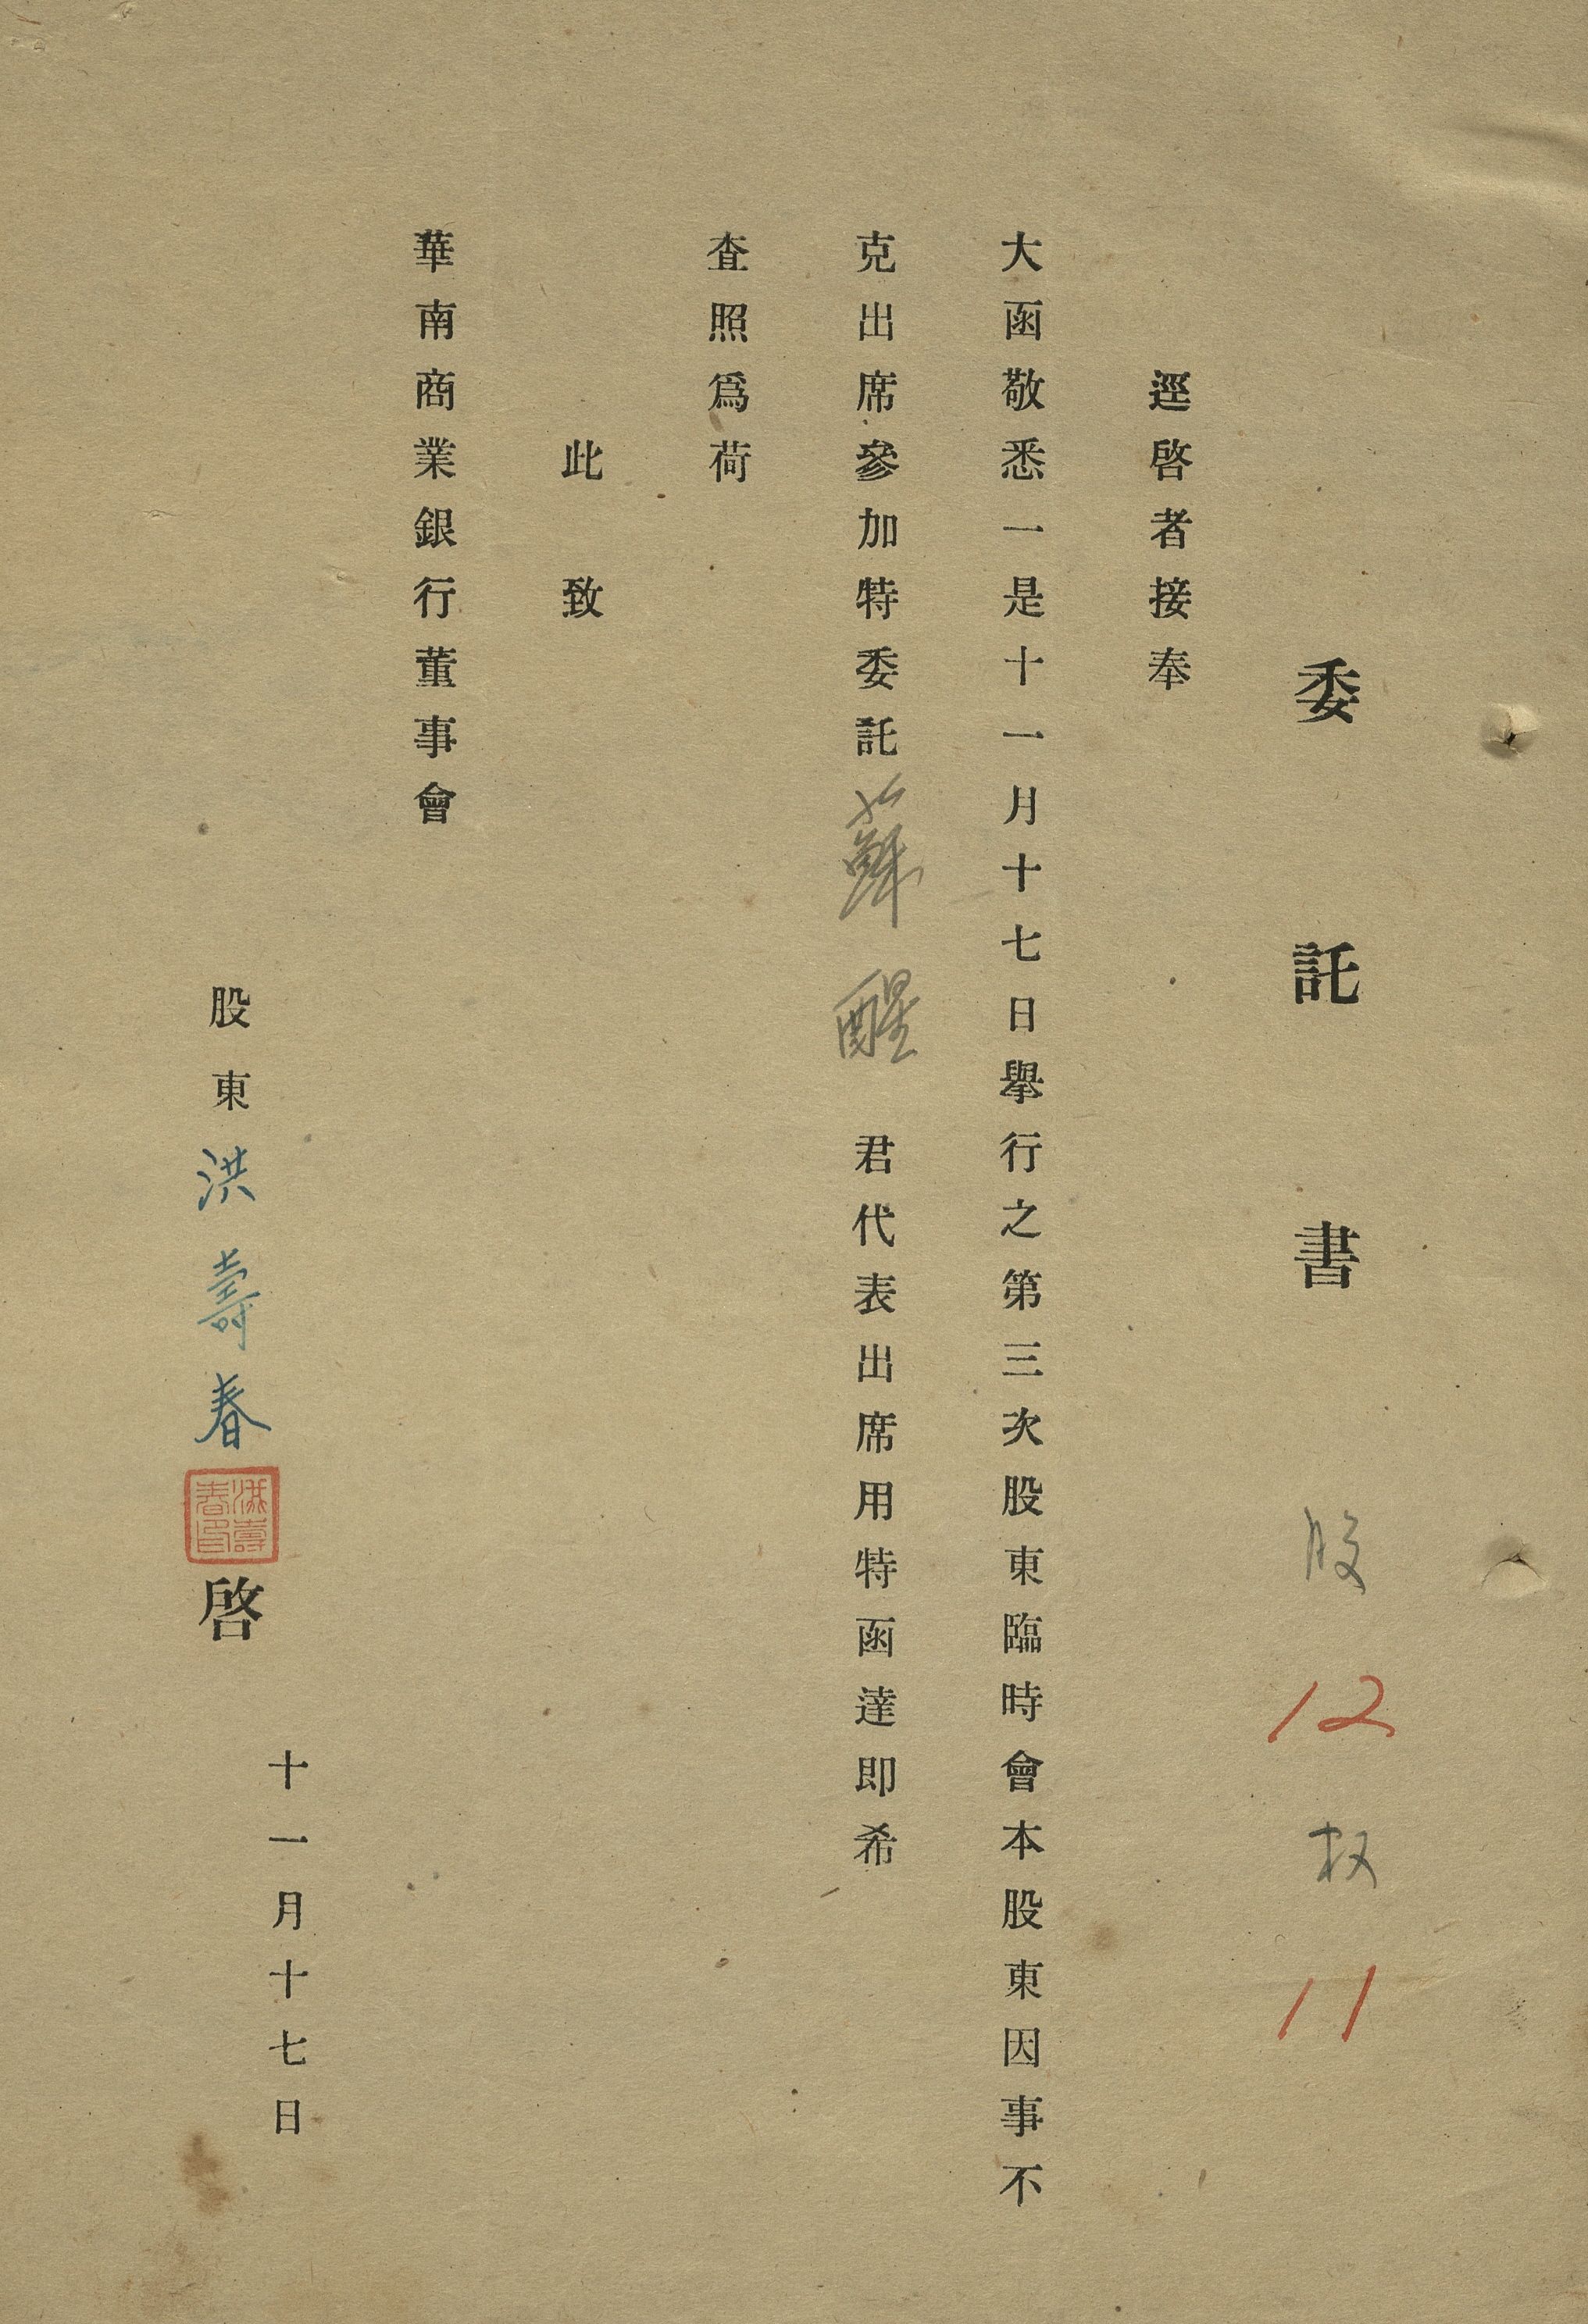 委託書 股 12 权 11
逕啓者接奉
大函敬悉一是十一月十七日舉行之第三次股東臨時會本股東因事不
克出席參加特委託蘇醒君代表出席用特函達即希
查照爲荷
此致
華南商業銀行董事會
十一月十七日
股東洪壽春啓
洪壽春印